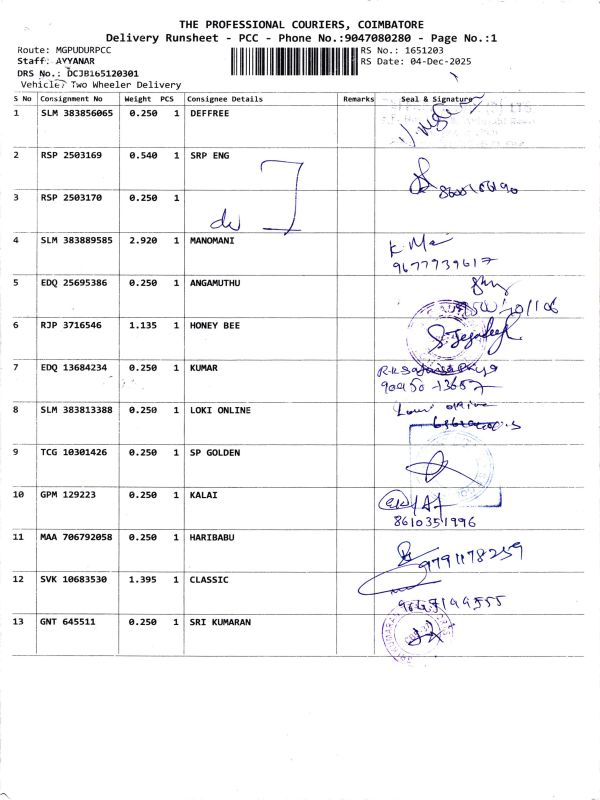 THE PROFESSIONAL COURIERS, COIMBATORE
Delivery Runsheet - PCC - Phone No.:9047080280 - Page No.:1
Route: MGPUDURPCC
Staff: AYYANAR
DRS No.: DCJB165120301
Vehicle: Two Wheeler Delivery
RS No.: 1651203
RS Date: 04-Dec-2025
S No Consignment No Weight PCS Consignee Details Remarks Seal & Signature
1 SLM 383856065 0.250 1 DEFFREE
2 RSP 2503169 0.540 1 SRP ENG
3 RSP 2503170 0.250 1
4 SLM 383889585 2.920 1 MANOMANI K. Ma
9677939617
5 EDQ 25695386 0.250 1 ANGAMUTHU
6 RJP 3716546 1.135 1 HONEY BEE
7 EDQ 13684234 0.250 1 KUMAR
90950-13657
8 SLM 383813388 0.250 1 LOKI ONLINE
9 TCG 10301426 0.250 1 SP GOLDEN
10 GPM 129223 0.250 1 KALAI
8610351996
11 MAA 706792058 0.250 1 HARIBABU
9791178259
12 SVK 10683530 1.395 1 CLASSIC
13 GNT 645511 0.250 1 SRI KUMARAN